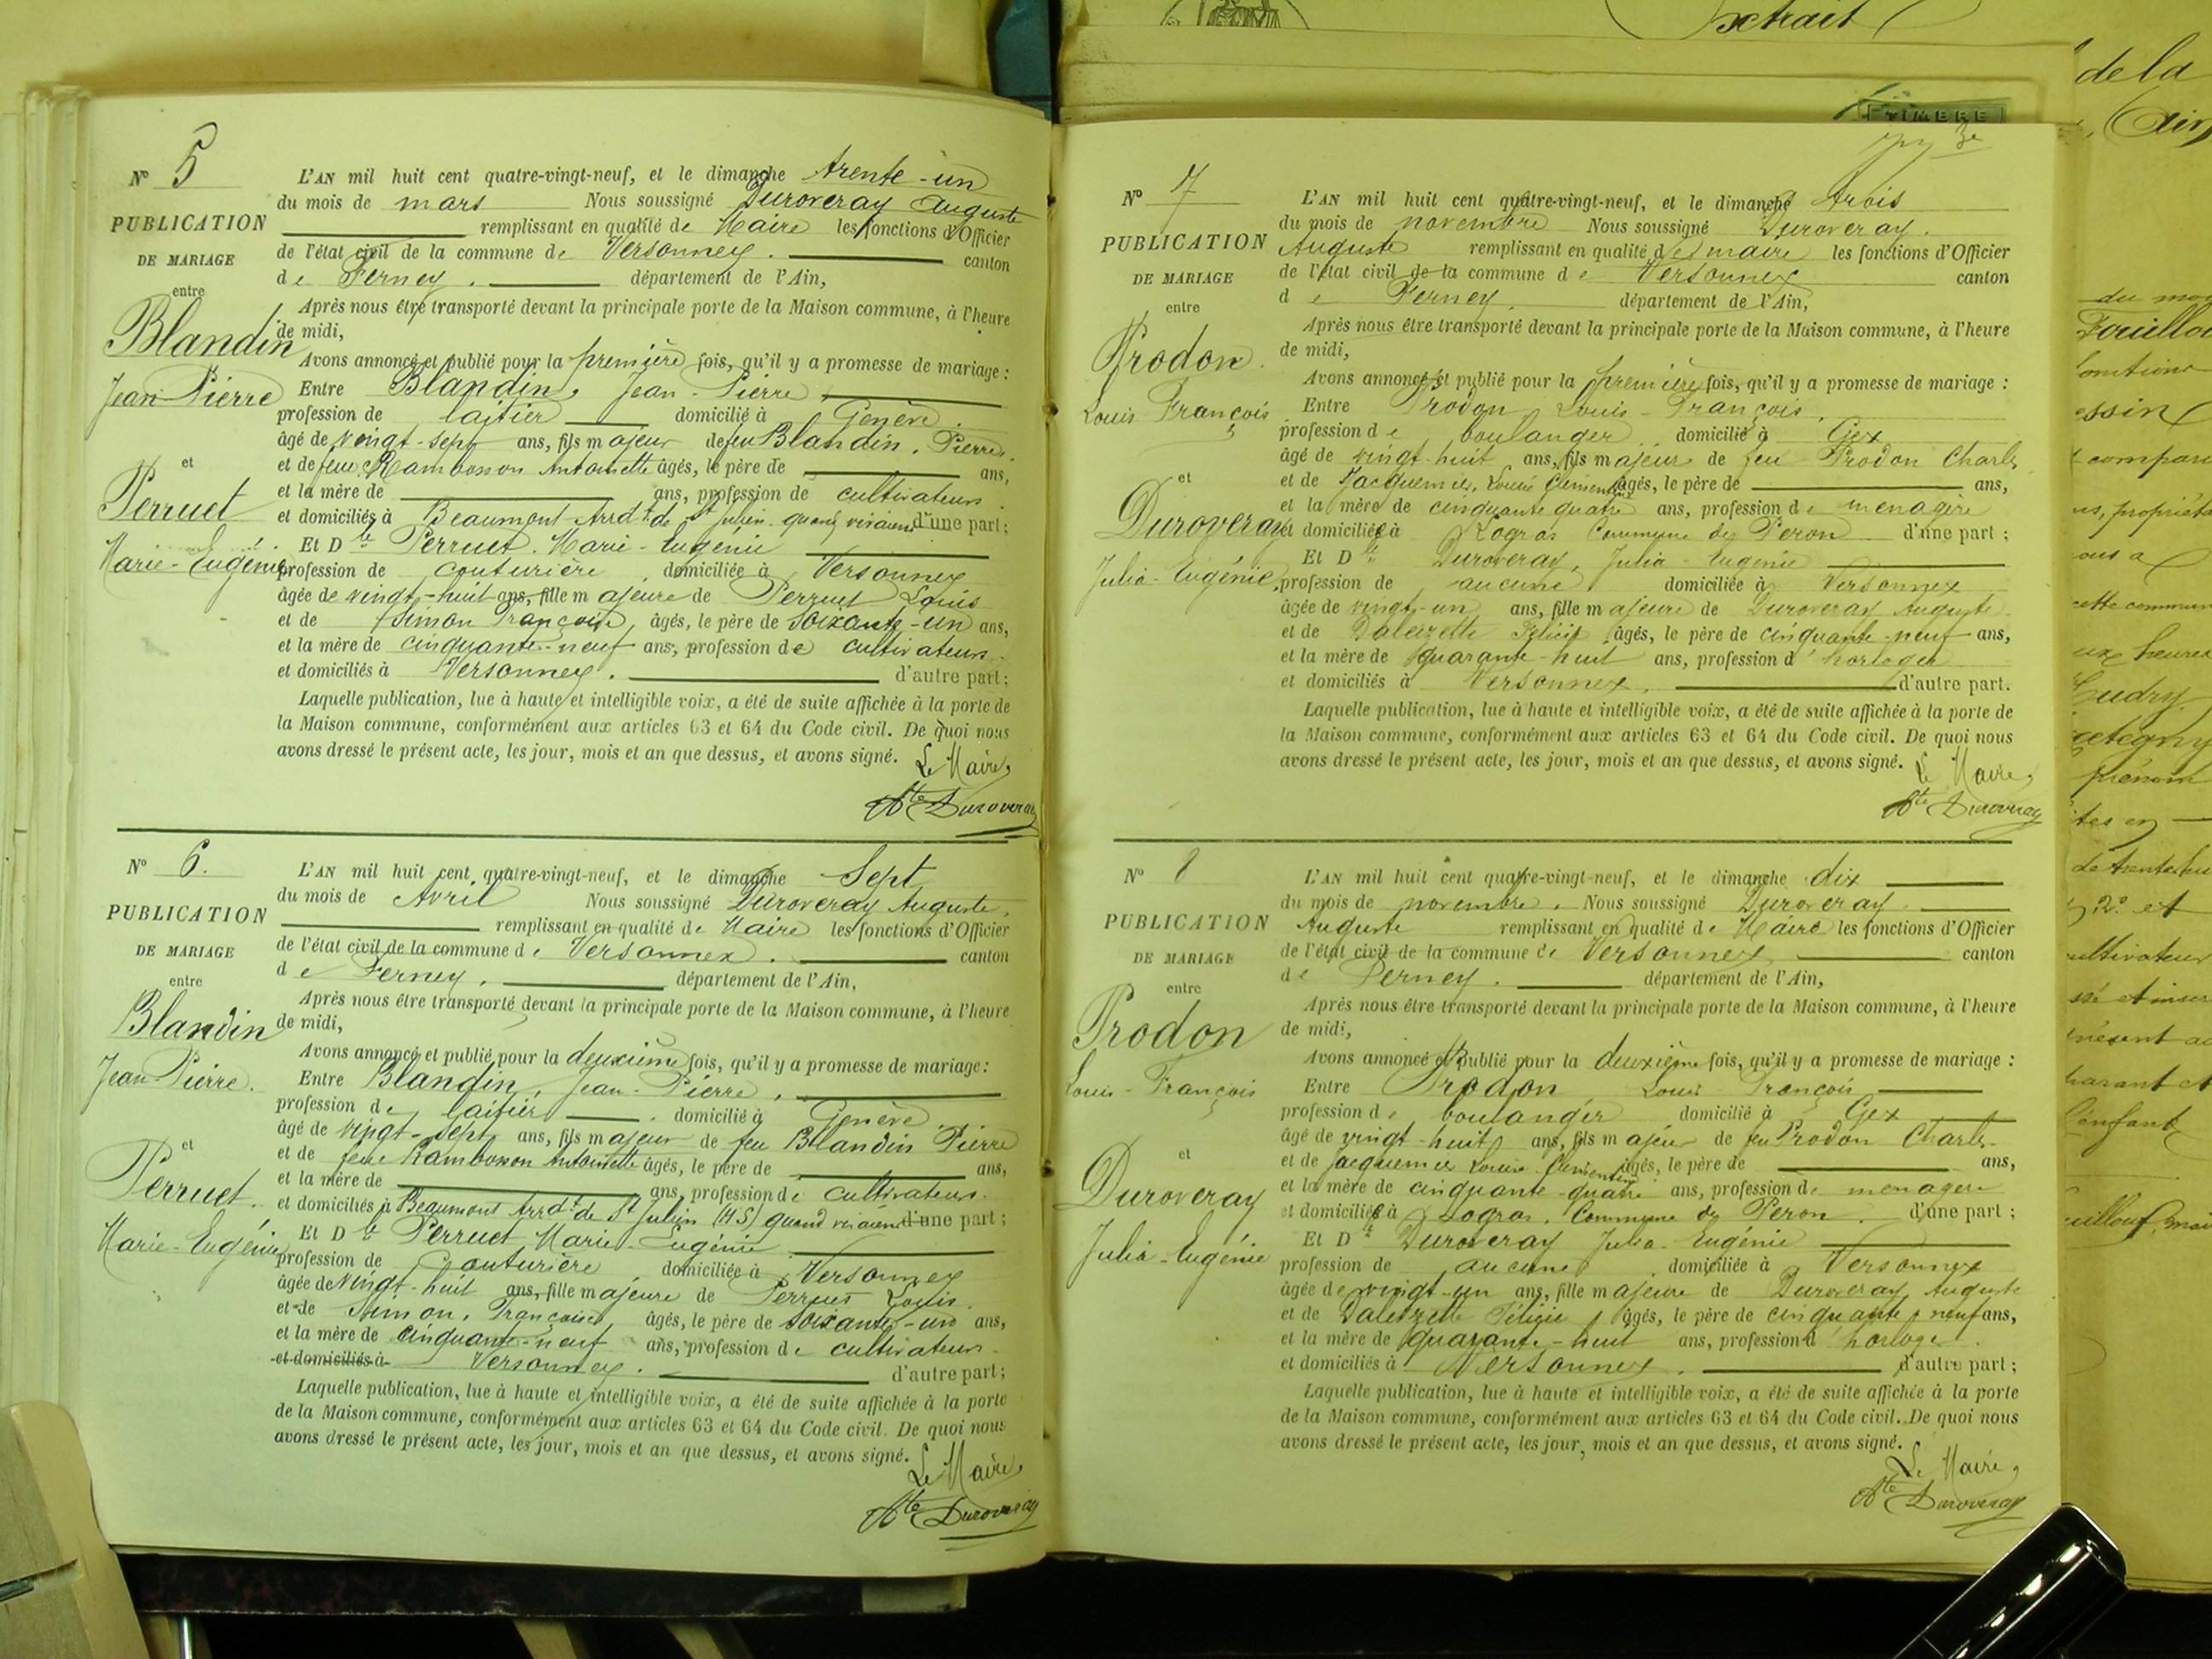 Nº 5
PUBLICATION
DE MARIAGE
entre
Blandin
Jean-Pierre
et
Perruet
Marie-Eugénie
L'AN mil huit cent quatre-vingt-neuf, et le dimanche trente-un
du mois de mars Nous soussigné Duroveray Auguste
remplissant en qualité de Maire les fonctions d'Officier
de l'état civil de la commune de Versonnex. canton
de Ferney. département de l'Ain,
Après nous être transporté devant la principale porte de la Maison commune, à l'heure
de midi,
Avons annoncé et publié pour la première fois, qu'il y a promesse de mariage :
Entre Blandin, Jean-Pierre
profession de laitier domicilié à Genève.
âgé de vingt-sept ans, fils majeur de feu Blandin, Pierre.
et de feue Rambosson Antoinette âgés, le père de ans,
et la mère de ans, profession de cultivateurs
et domiciliés à Beaumont Arrdt de St Julien quand vivaient d'une part ;
Et Dlle Perruet Marie-Eugénie
profession de couturière domiciliée à Versonnex
âgée de vingt-huit ans, fille majeure de Perruet Louis
et de Simon Françoise, âgés, le père de soixante-un ans,
et la mère de cinquante-neuf ans, profession de cultivateurs
et domiciliés à Versonnex. d'autre part ;
Laquelle publication, lue à haute et intelligible voix, a été de suite affichée à la porte de
la Maison commune, conformément aux articles 63 et 64 du Code civil. De quoi nous
avons dressé le présent acte, les jour, mois et an que dessus, et avons signé.
Le Maire,
Ate Duroveray
Nº 6.
PUBLICATION
DE MARIAGE
entre
Blandin
Jean-Pierre.
et
Perruet.
Marie-Eugénie
L'AN mil huit cent quatre-vingt-neuf, et le dimanche Sept
du mois de Avril Nous soussigné Duroveray Auguste.
remplissant en qualité de Maire les fonctions d'Officier
de l'état civil de la commune de Versonnex. canton
de Ferney. département de l'Ain,
Après nous être transporté devant la principale porte de la Maison commune, à l'heure
de midi,
Avons annoncé et publié pour la deuxième fois, qu'il y a promesse de mariage :
Entre Blandin, Jean-Pierre,
profession de laitier domicilié à Genève
âgé de vingt-sept ans, fils majeur de feu Blandin Pierre
et de feue Rambosson Antoinette âgés, le père de ans,
et la mère de ans, profession de cultivateurs.
et domiciliés à Beaumont Arrdt de St Julien (HS) quand vivaient d'une part ;
Et Dlle Perruet Marie-Eugénie
profession de Couturière domiciliée à Versonnex
âgée de vingt-huit ans, fille majeure de Perruet Louis.
et de Simon, Françoise, âgés, le père de soixante-un ans,
et la mère de cinquante-neuf ans, profession de cultivateurs
et domiciliés à Versonnex. d'autre part ;
Laquelle publication, lue à haute et intelligible voix, a été de suite affichée à la porte
de la Maison commune, conformément aux articles 63 et 64 du Code civil. De quoi nous
avons dressé le présent acte, les jour, mois et an que dessus, et avons signé.
Le Maire,
Ate Duroveray
xtrait
TIMBRE
3e
Nº 7
PUBLICATION
DE MARIAGE
entre
Prodon.
Louis François
et
Duroveray
Julia-Eugénie,
L'AN mil huit cent quatre-vingt-neuf, et le dimanche trois
du mois de novembre Nous soussigné Duroveray.
Auguste remplissant en qualité de maire les fonctions d'Officier
de l'état civil de la commune de Versonnex canton
de Ferney. département de l'Ain,
Après nous être transporté devant la principale porte de la Maison commune, à l'heure
de midi,
Avons annoncé et publié pour la première fois, qu'il y a promesse de mariage :
Entre Prodon Louis-François,
profession de boulanger domicilié à Gex
âgé de vingt-huit ans, fils majeur de feu Prodon Charles
et de Jacquemier, Louise Clémentine âgés, le père de ans,
et la mère de cinquante quatre ans, profession de menagère
et domiciliés à Logras Commune de Peron d'une part ;
Et Dlle Duroveray, Julia-Eugénie
profession de aucune domiciliée à Versonnex
âgée de vingt-un ans, fille majeure de Duroveray Auguste
et de Daleizette Félicie âgés, le père de cinquante-neuf ans,
et la mère de quarante-huit ans, profession d'horloger
et domiciliés à Versonnex. d'autre part.
Laquelle publication, lue à haute et intelligible voix, a été de suite affichée à la porte de
la Maison commune, conformément aux articles 63 et 64 du Code civil. De quoi nous
avons dressé le présent acte, les jour, mois et an que dessus, et avons signé.
Le Maire,
Ate Duroveray
Nº 8
PUBLICATION
DE MARIAGE
entre
Prodon
Louis-François
et
Duroveray
Julia-Eugénie
L'AN mil huit cent quatre-vingt-neuf, et le dimanche dix
du mois de novembre. Nous soussigné Duroveray.
Auguste remplissant en qualité de Maire les fonctions d'Officier
de l'état civil de la commune de Versonnex canton
de Ferney. département de l'Ain,
Après nous être transporté devant la principale porte de la Maison commune, à l'heure
de midi,
Avons annoncé et publié pour la deuxième fois, qu'il y a promesse de mariage :
Entre Prodon Louis François
profession de boulanger domicilié à Gex
âgé de vingt-huit ans, fils majeur de feu Prodon Charles
et de Jacquemier Louise Clémentine âgés, le père de ans,
et la mère de cinquante-quatre ans, profession de menagère
et domiciliés à Logras. Commune de Peron. d'une part ;
Et Dlle Duroveray Julia-Eugénie
profession de aucune domiciliée à Versonnex
âgée de vingt-un ans, fille majeure de Duroveray Auguste
et de Daleizette Félicie, âgés, le père de cinquante neuf ans,
et la mère de quarante-huit ans, profession d'horloger.
et domiciliés à Versonnex. d'autre part ;
Laquelle publication, lue à haute et intelligible voix, a été de suite affichée à la porte
de la Maison commune, conformément aux articles 63 et 64 du Code civil. De quoi nous
avons dressé le présent acte, les jour, mois et an que dessus, et avons signé.
Le Maire,
Ate Duroveray
de la
du mo
essin
compar
cette commun
eux heures
Cudry
prénom
de trente hu
2º et
ultivateur
présent ac
l'enfant